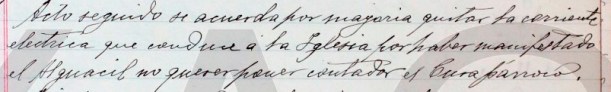 Acto seguido se acuerda por mayoria quitar la corriente
electrica que conduce á la Iglesia por haber manifestado
el Alguacil no querer poner contador el Cura párroco.